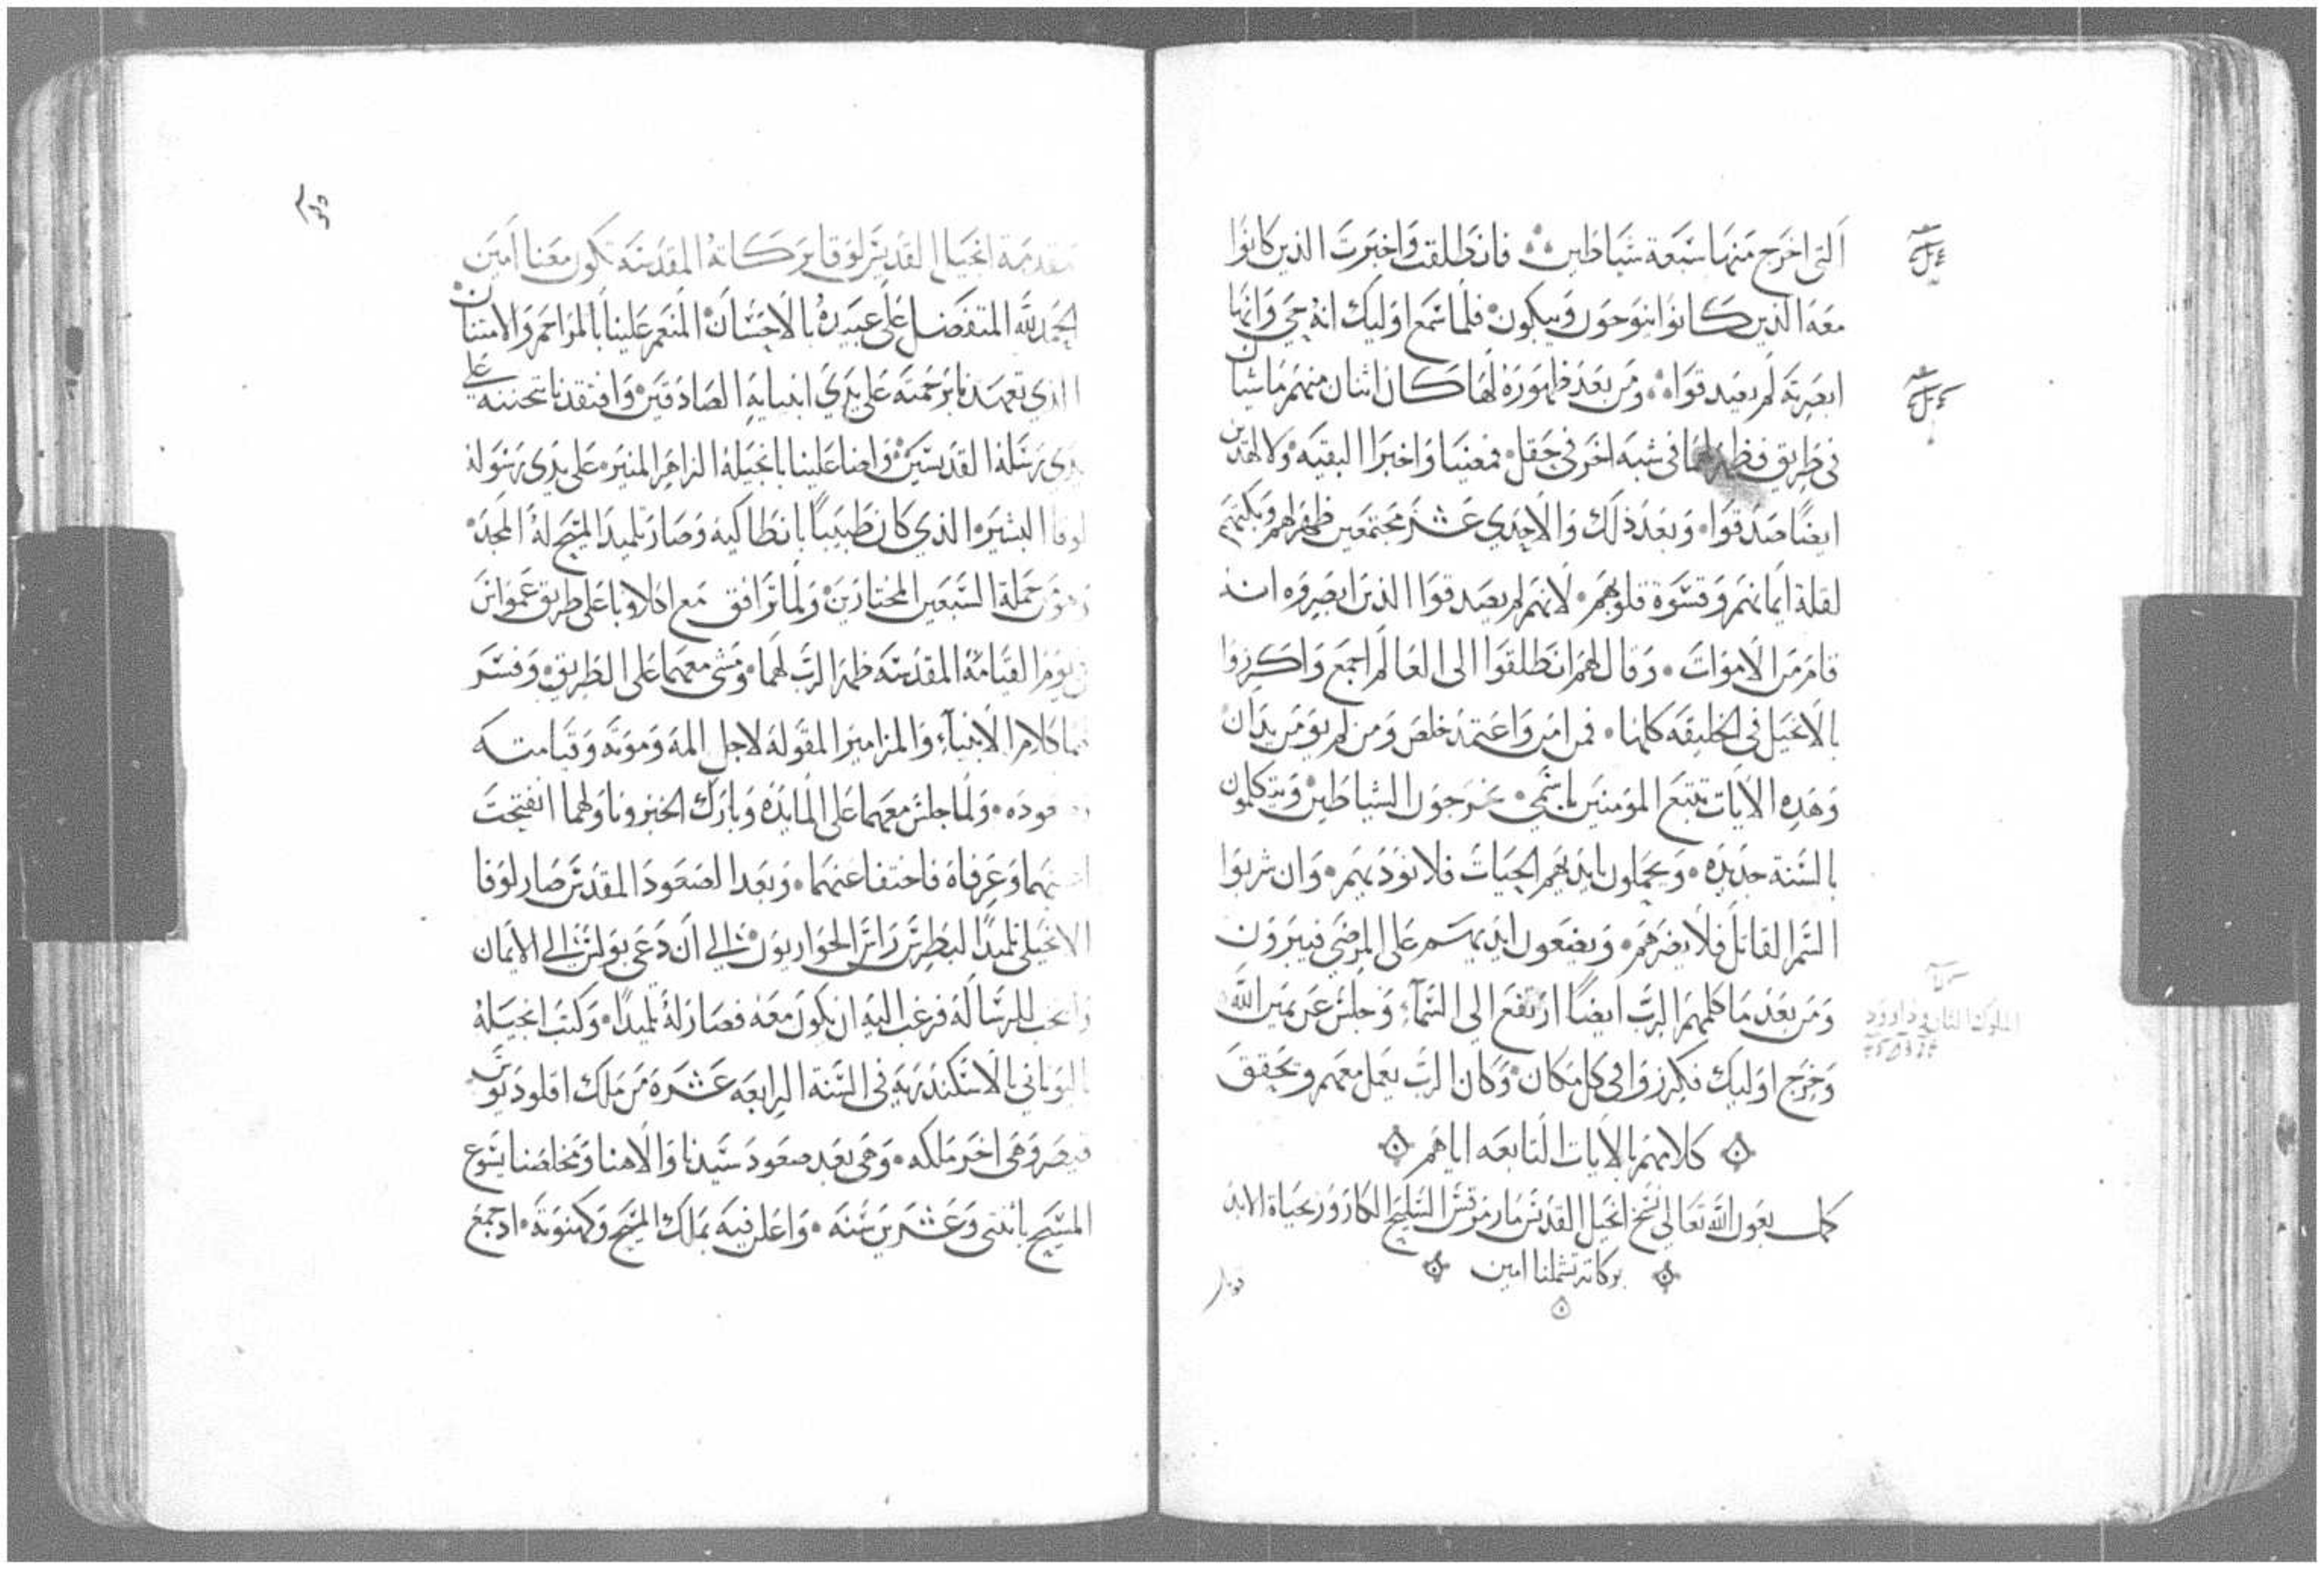 التى اخرج منها سبعة شياطين فانطلقت واخبرت الذين كانوا
معه الذين كانوا ينوحون ويبكون فلما سمع اوليك انه حى وانها
ابصرته لم يصدقوا ومن بعد ظهوره لها كان اثنان منهم ماشيان
فى طريق فظهر لهما فى شبه اخر فى حقل فمضيا واخبرا البقيه ولا لهذين
ايضًا صدقوا وبعد ذلك والاحدي عشر مجتمعين ظهر لهم وبكتهم
لقلة ايمانهم وقسوة قلوبهم لانهم لم يصدقوا الذين ابصروه انه
قام من الاموات وقال لهم انطلقوا الى العالم اجمع واكرزوا
بالانجيل فى الخليقه كلها فمن امن واعتمد خلص ومن لم يومن يدان
وهذه الايات تتبع المومنين باسمي يخرجون الشياطين ويتكلمون
بالسنة جديده ويحملون بايديهم الحيات فلا توذيهم وان شربوا
السم القاتل فلا يضرهم ويضعون ايديهم على المرضى فيبرون
ومن بعد ما كلمهم الرب ايضًا ارتفع الى السمآء وجلس عن يمين الله
وخرج اوليك فكرزوا فى كل مكان وكان الرب يعمل معهم ويحقق
كلامهم بالايات التابعه اياهم
كمل بعون الله تعالى نسخ انجيل القديس مار مرقس السليح الكاروز بحياة الابد
بركاته تشملنا امين
مقدمة انجيل القديس لوقا بركاته المقدسه تكون معنا امين
الحمد لله المتفضل على عبيده بالاحسان المنعم علينا بالمراحم والامتنان
الذي تعهدنا برحمته على يدي انبيايه الصادقين وافتقدنا بتحننه على
يدي رسله القديسين واضا علينا بانجيله الزاهر المنير على يدى رسوله
لوقا البشير الذي كان طبيبًا بانطاكيه وصار تلميد المسيح له المجد
وهو من جملة السبعين المختارين ولما ترافق مع اكلاوبا على طريق عمواس
فى يوم القيامة المقدسه ظهر الرب لهما ومشى معهما على الطريق وفسر
لهما كلام الانبيآء والمزامير المقوله لاجل المه وموته وقيامته
وصعوده ولما جلس معهما على المايده وبارك الخبز وناولهما انفتحت
اعينهما وعرفاه فاختفا عنهما وبعد الصعود المقدس صار لوقا
الانجيلى تلميدًا لبطرس راس الحواريون الي ان دعى بولس الي الايمان
وانتخب للرسالة فرغب اليه ان يكون معه فصار له تلميدًا وكتب انجيله
باليوناني بالاسكندريه فى السنة الرابعه عشره من ملك اقلوديوس
قيصر وهى اخر ملكه وهى بعد صعود سيدنا والاهنا ومخلصنا يسوع
المسيح باثنتى وعشرين سنه واعلن فيه بملك المسيح وكهنوته ادجمع